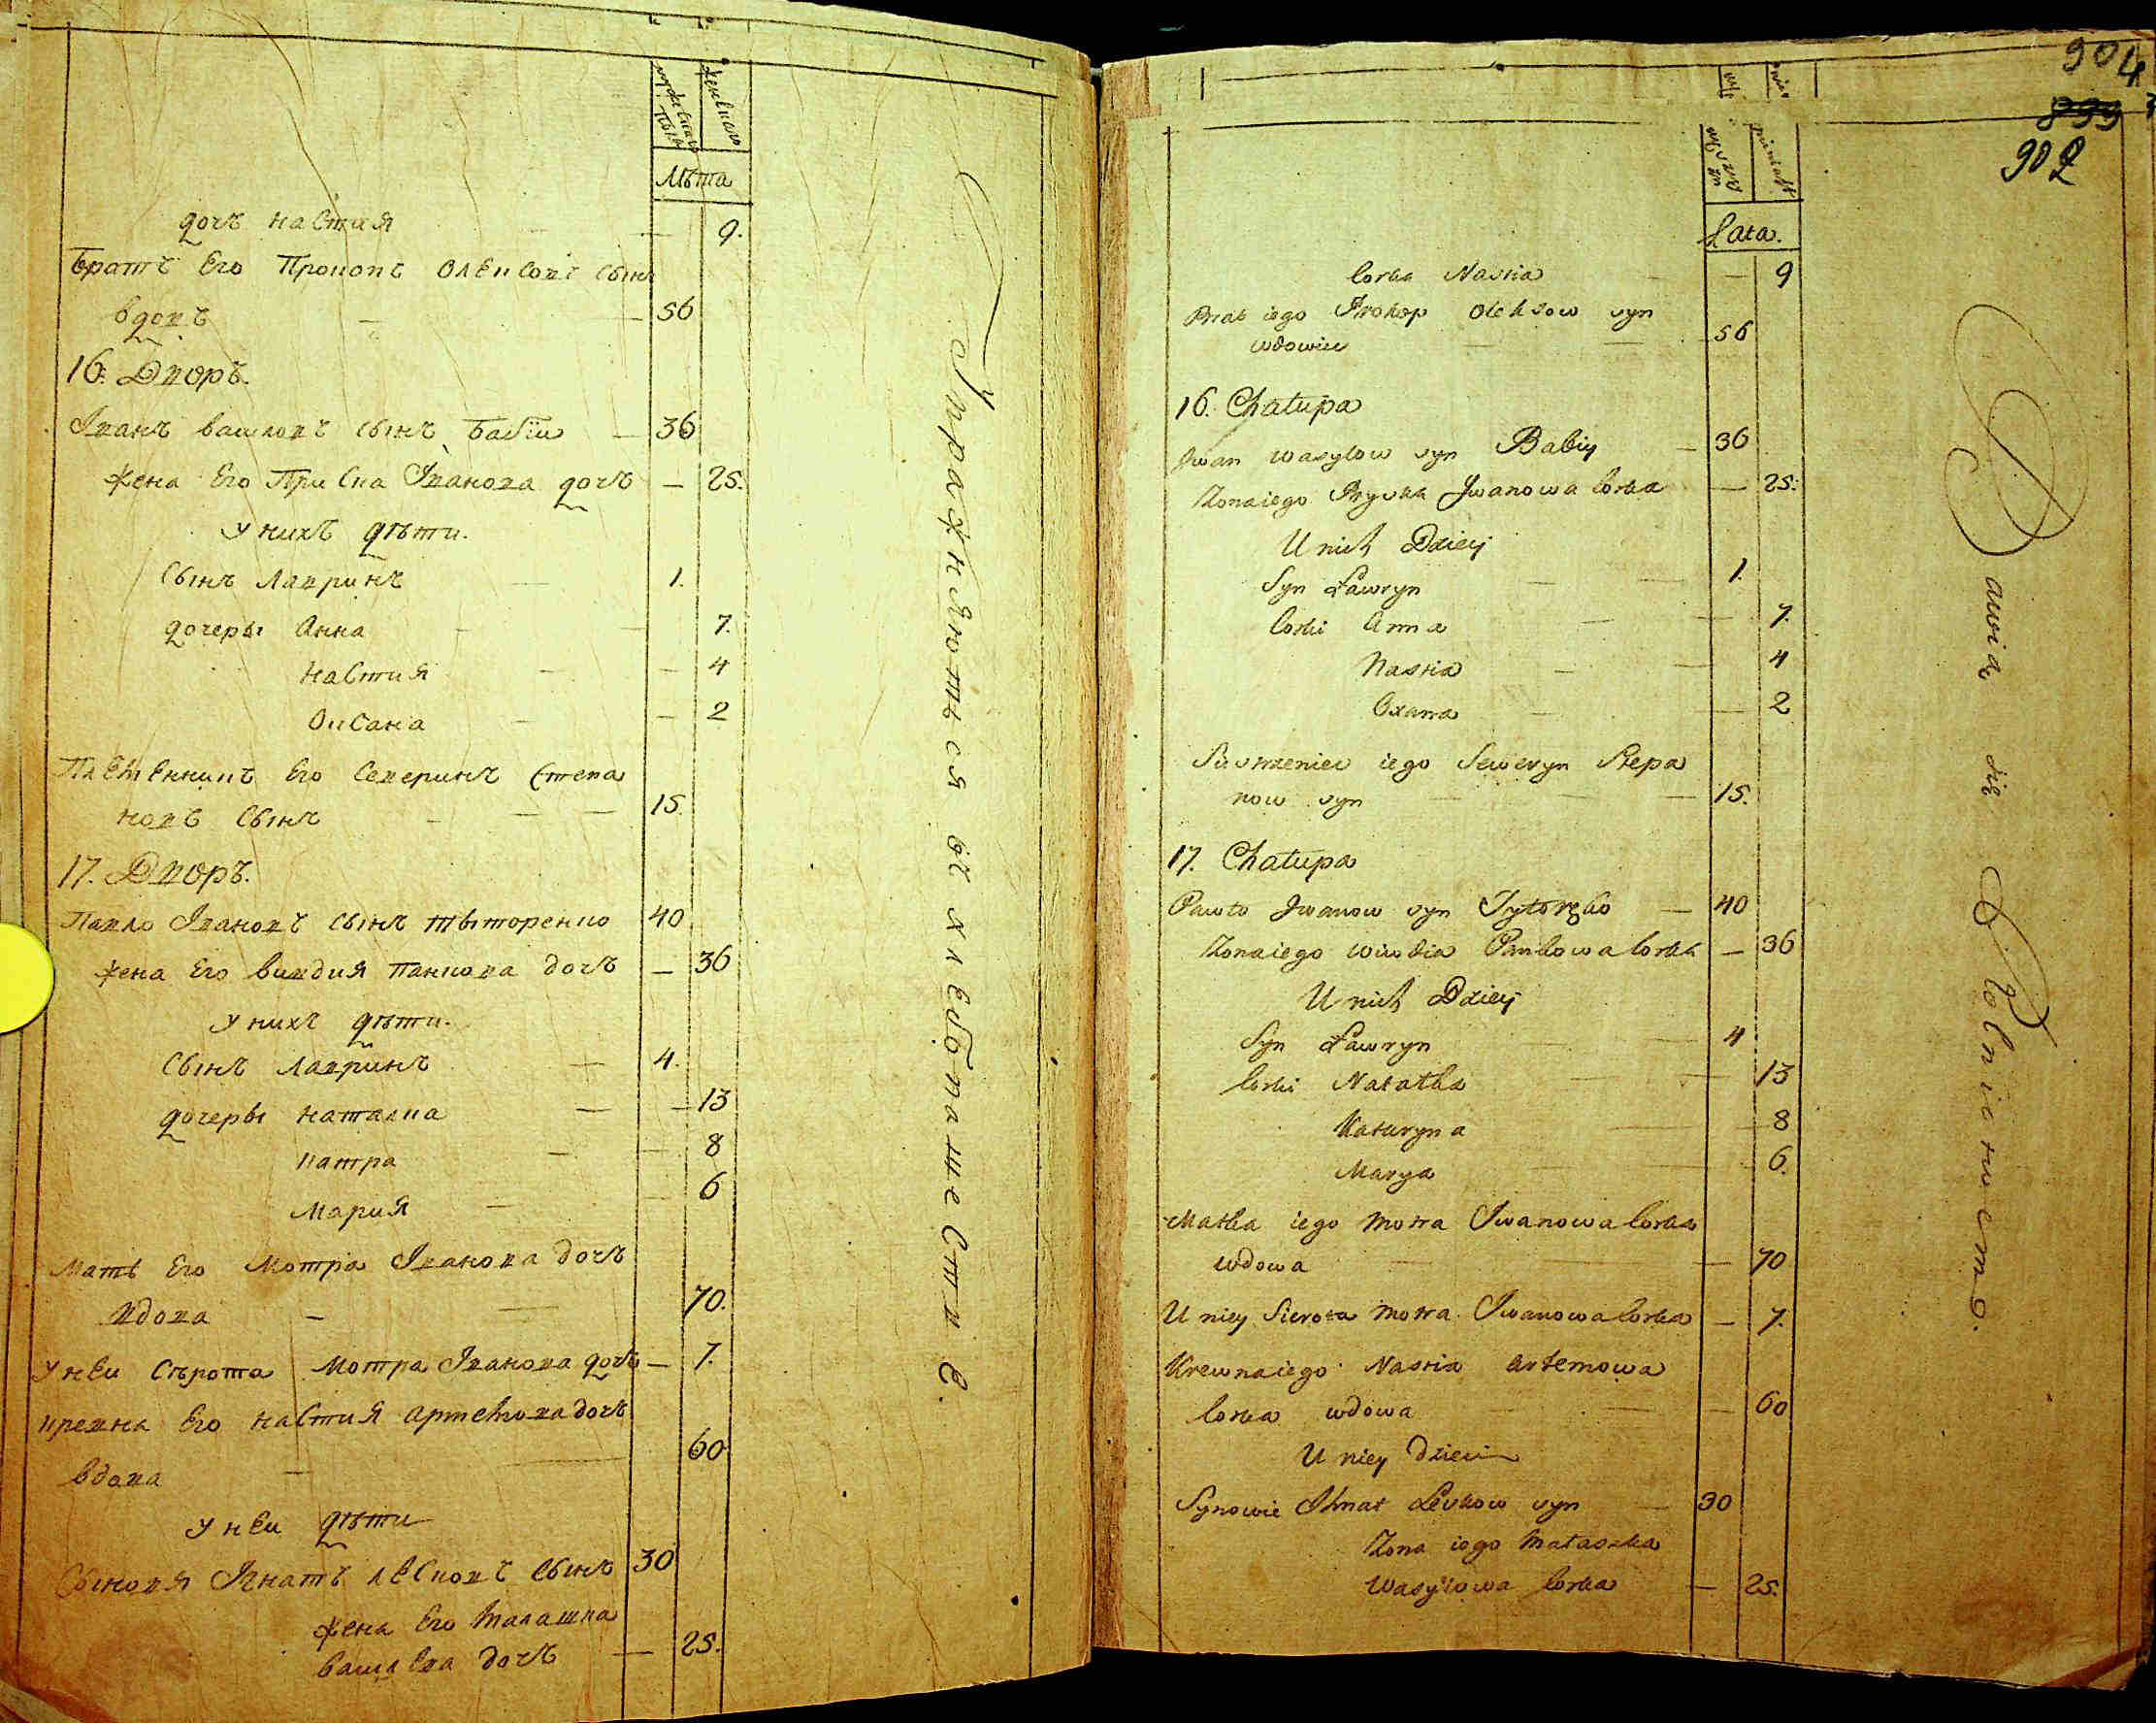 мужеска пола
женска
Лѣта
дочь Настия 9.
Братъ Его Прокопъ Олексовъ сынъ
вдовъ 56
16. Дворъ.
Іванъ василовъ сынъ Бабiи — 36
жена Его Приска Іванова дочь — 25.
у нихъ дѣти.
сынъ Лавринъ 1.
дочеры Анна 7.
Настия — 4
Оксана — 2
Племенникъ Его Северинъ Степа
новъ сынъ — 15.
17. Дворъ.
Павло Івановъ сынъ тыторенко 40
жена Его вивдия панкова дочь — 36
у нихъ дѣти.
сынъ Лавринъ — 4.
дочеры Наталка — 13
катра — 8
Мария — 6
Мать Его Мотра Іванова дочь
вдова — 70.
у неи сѣрота Мотра Іванова дочь — 7.
кревна Его Настия артемова дочь
вдова — 60
у неи дѣти
сыновя Ігнатъ лесковъ сынъ 30
жена Его Малашка
василева дочь — 25.
Упражняютъся въ хлебопашестве.
904
899
902
Lata.
Corka Nastia — 9
Brat iego Prokop Oleksow syn
wdowiec — 56
16. Chałupa
Jwan wasylow syn Babiy — 36
Zona iego Pryska Jwanowa Corka — 25.
U nich Dzieci
Syn Ławryn — 1.
Corki Anna — 7.
Nastia — 4
Oxana — 2
Siestrzeniec iego Seweryn Stepa
now syn — 15.
17. Chałupa
Pawło Jwanow syn Tytorenko — 40
Zona iego wiwdia Pankowa Corka — 36
U nich Dzieci
Syn Ławryn — 4
Corki Natalka — 13
Kateryna — 8
Marya — 6.
Matka iego Motra Jwanowa Corka
wdowa — 70
U niey Sierota Motra Jwanowa Corka — 7.
Krewna iego Nastia Artemowa
Corka wdowa — 60
U niey Dzieci
Synowie Ihnat Leskow syn — 30
Zona iego Małaszka
Wasylowa Corka — 25.
Bawią się Rolnictwem.